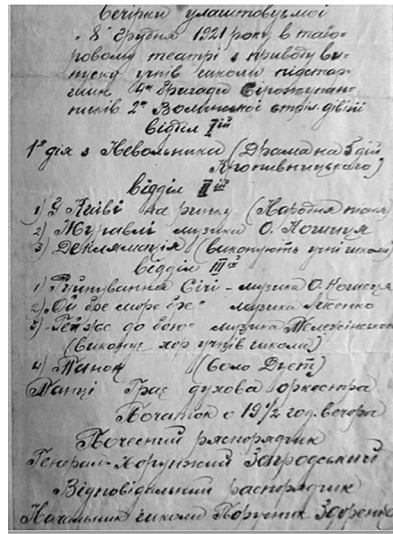 вечірки улаштовуємої
8 Грудня 1921 року, в табо-
ровому театрі з приводу ви-
пуску учнів школи підстар-
шин 4ої бригади Сірожупан-
ників 2ої Волинської стріл. дівізії
відділ Iій
1а дія з Невольника (Драма на 5 дій
Кропивницького)
відділ IIій
1) У Київі на ринку (Народня пісня)
2) Журавлі музика О. Кошиця
3) Деклямація (виконують учні школи)
відділ IIIій
1) Руйнування Січі - музика О. Кошиця
2) "Ой бє море бє" музика
3) "Гей же до бою" музика
(виконує хор учнів школи)
4) Танок (соло Дует)
Танці Грає духова оркестра
Початок о 19 1/2 год. вечора
Почесний распорядчик
Генерал-Хорунжий Загродський
Відповідальний распорядчик
Начальник школи Поручник